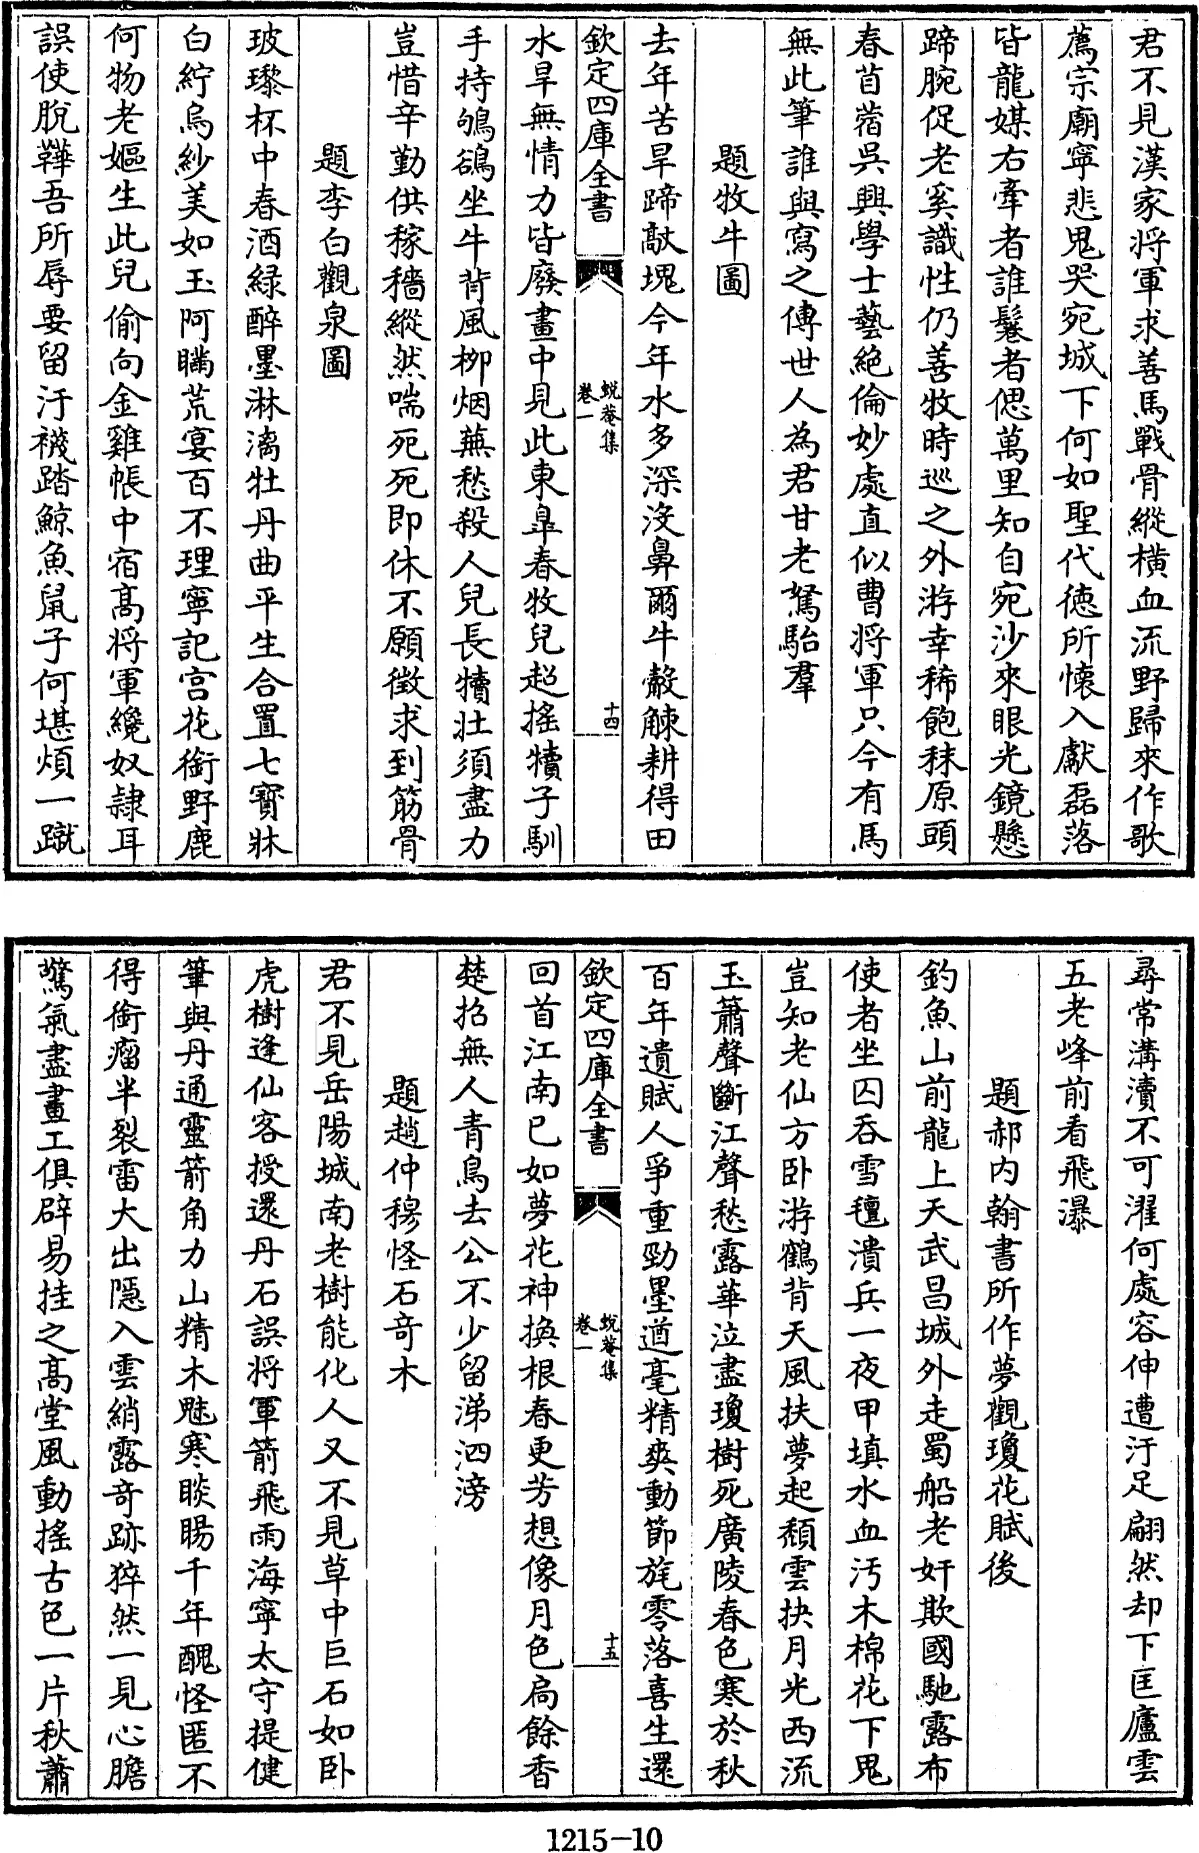 君不見漢家將軍求善馬戰骨縱橫血流野歸來作歌
薦宗廟寧悲鬼哭宛城下何如聖代徳所懷入獻磊落
皆龍媒右牽者誰鬈者偲萬里知自宛沙來眼光鏡懸
蹄腕促老奚識性仍善牧時巡之外游幸稀飽秣原頭
春苜蓿吳興學士藝絶倫妙處直似曹將軍只今有馬
無此筆誰與寫之傳世人為君甘老駑駘羣
題牧牛圖
去年苦旱蹄敲塊今年水多深沒鼻爾牛觳觫耕得田
欽定四庫全書
蛻菴集
卷一
十四
水旱無情力皆廢畫中見此東臯春牧兒超搖犢子馴
手持鴝鵒坐牛背風柳烟蕪愁殺人兒長犢壯須盡力
豈惜辛勤供稼穡縱然喘死死即休不願徴求到筋骨
題李白觀泉圖
玻瓈杯中春酒緑醉墨淋漓牡丹曲平生合置七寳牀
白紵烏紗美如玉阿瞞荒宴百不理寧記宫花銜野鹿
何物老嫗生此兒偷向金雞帳中宿髙將軍纔奴隷耳
誤使脫鞾吾所辱要留汙襪踏鯨魚鼠子何堪煩一蹴
尋常溝瀆不可濯何處容伸遭汙足翩然却下匡廬雲
五老峰前看飛瀑
題郝内翰書所作夢觀瓊花賦後
釣魚山前龍上天武昌城外走蜀船老奸欺國馳露布
使者坐囚吞雪氊潰兵一夜甲填水血汚木棉花下鬼
豈知老仙方卧游鶴背天風扶夢起頽雲抉月光西流
玉簫聲斷江聲愁露華泣盡瓊樹死廣陵春色寒於秋
百年遺賦人爭重勁墨遒毫精爽動節旄零落喜生還
欽定四庫全書
蛻菴集
卷一
十五
回首江南已如夢花神換根春更芳想像月色扃餘香
楚招無人青鳥去公不少留涕泗滂
題趙仲穆怪石竒木
君不見岳陽城南老樹能化人又不見草中巨石如卧
虎樹逢仙客授還丹石誤將軍箭飛雨海寧太守提健
筆與丹通靈箭角力山精木魅寒睒睗千年醜怪匿不
得銜瘤半裂雷大出隠入雲綃露竒跡猝然一見心膽
驚氣盡畫工俱辟易挂之髙堂風動搖古色一片秋蕭
1215-10